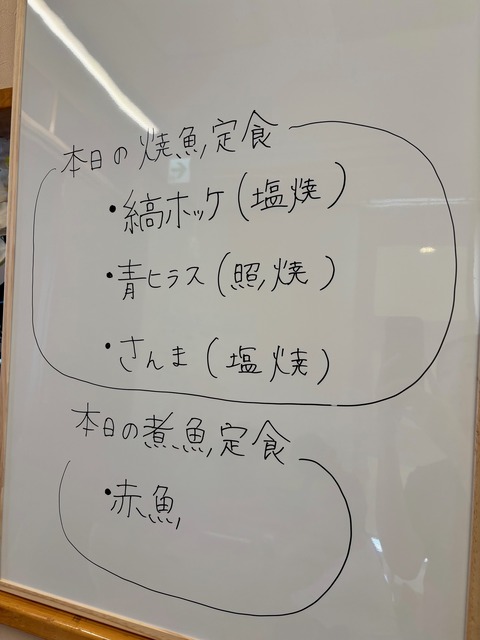 本日の焼魚定食
・縞ホッケ(塩焼)
・青ヒラス(照焼)
・さんま(塩焼)
本日の煮魚定食
・赤魚